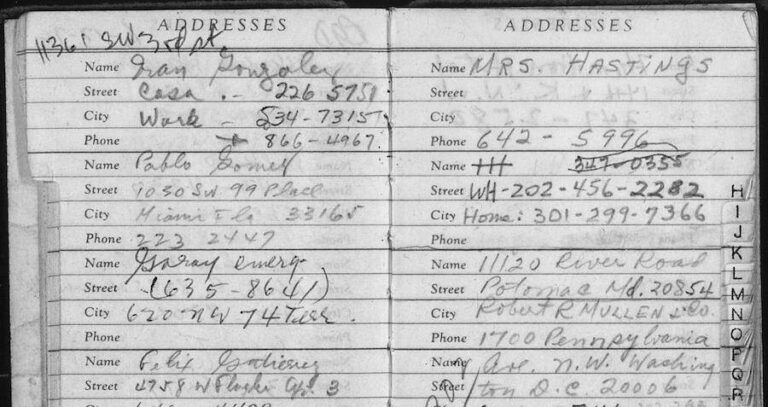 ADDRESSES
11361 SW 3rd St
Name Ivan Gonzalez
Street Casa - 226 5751
City Work - 534-7315
Phone 866-4967
Name Pablo Gomez
Street 1030 SW. 99 Place
City Miami Fla 33165
Phone 223 2447
Name Garay emerg
Street (635-8641)
City 620 NW 74 Terr.
Phone
Name Felix Gutierrez
Street 4758 W Flagler Ap. 3
City
ADDRESSES
Name MRS. HASTINGS
Street
City
Phone 642-5996
Name HH 347-0355
Street WH-202-456-2282
City Home: 301-299-7366
Phone
Name 11120 River Road
Street Potomac Md. 20854
City Robert R MULLEN & Co.
Phone 1700 Pennsylvania
Name Ave. N.W. Washing
Street ton D.C. 20006
H
I
J
K
L
M
N
O
P
Q
R